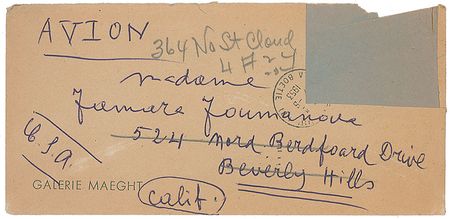 AVION
364 No St Cloud
4 # 27
madame
Tamara Toumanova
524 Nord Berdfoard Drive
Beverly Hills
Calif.
U.S.A.
GALERIE MAEGHT
BOETIE
1953